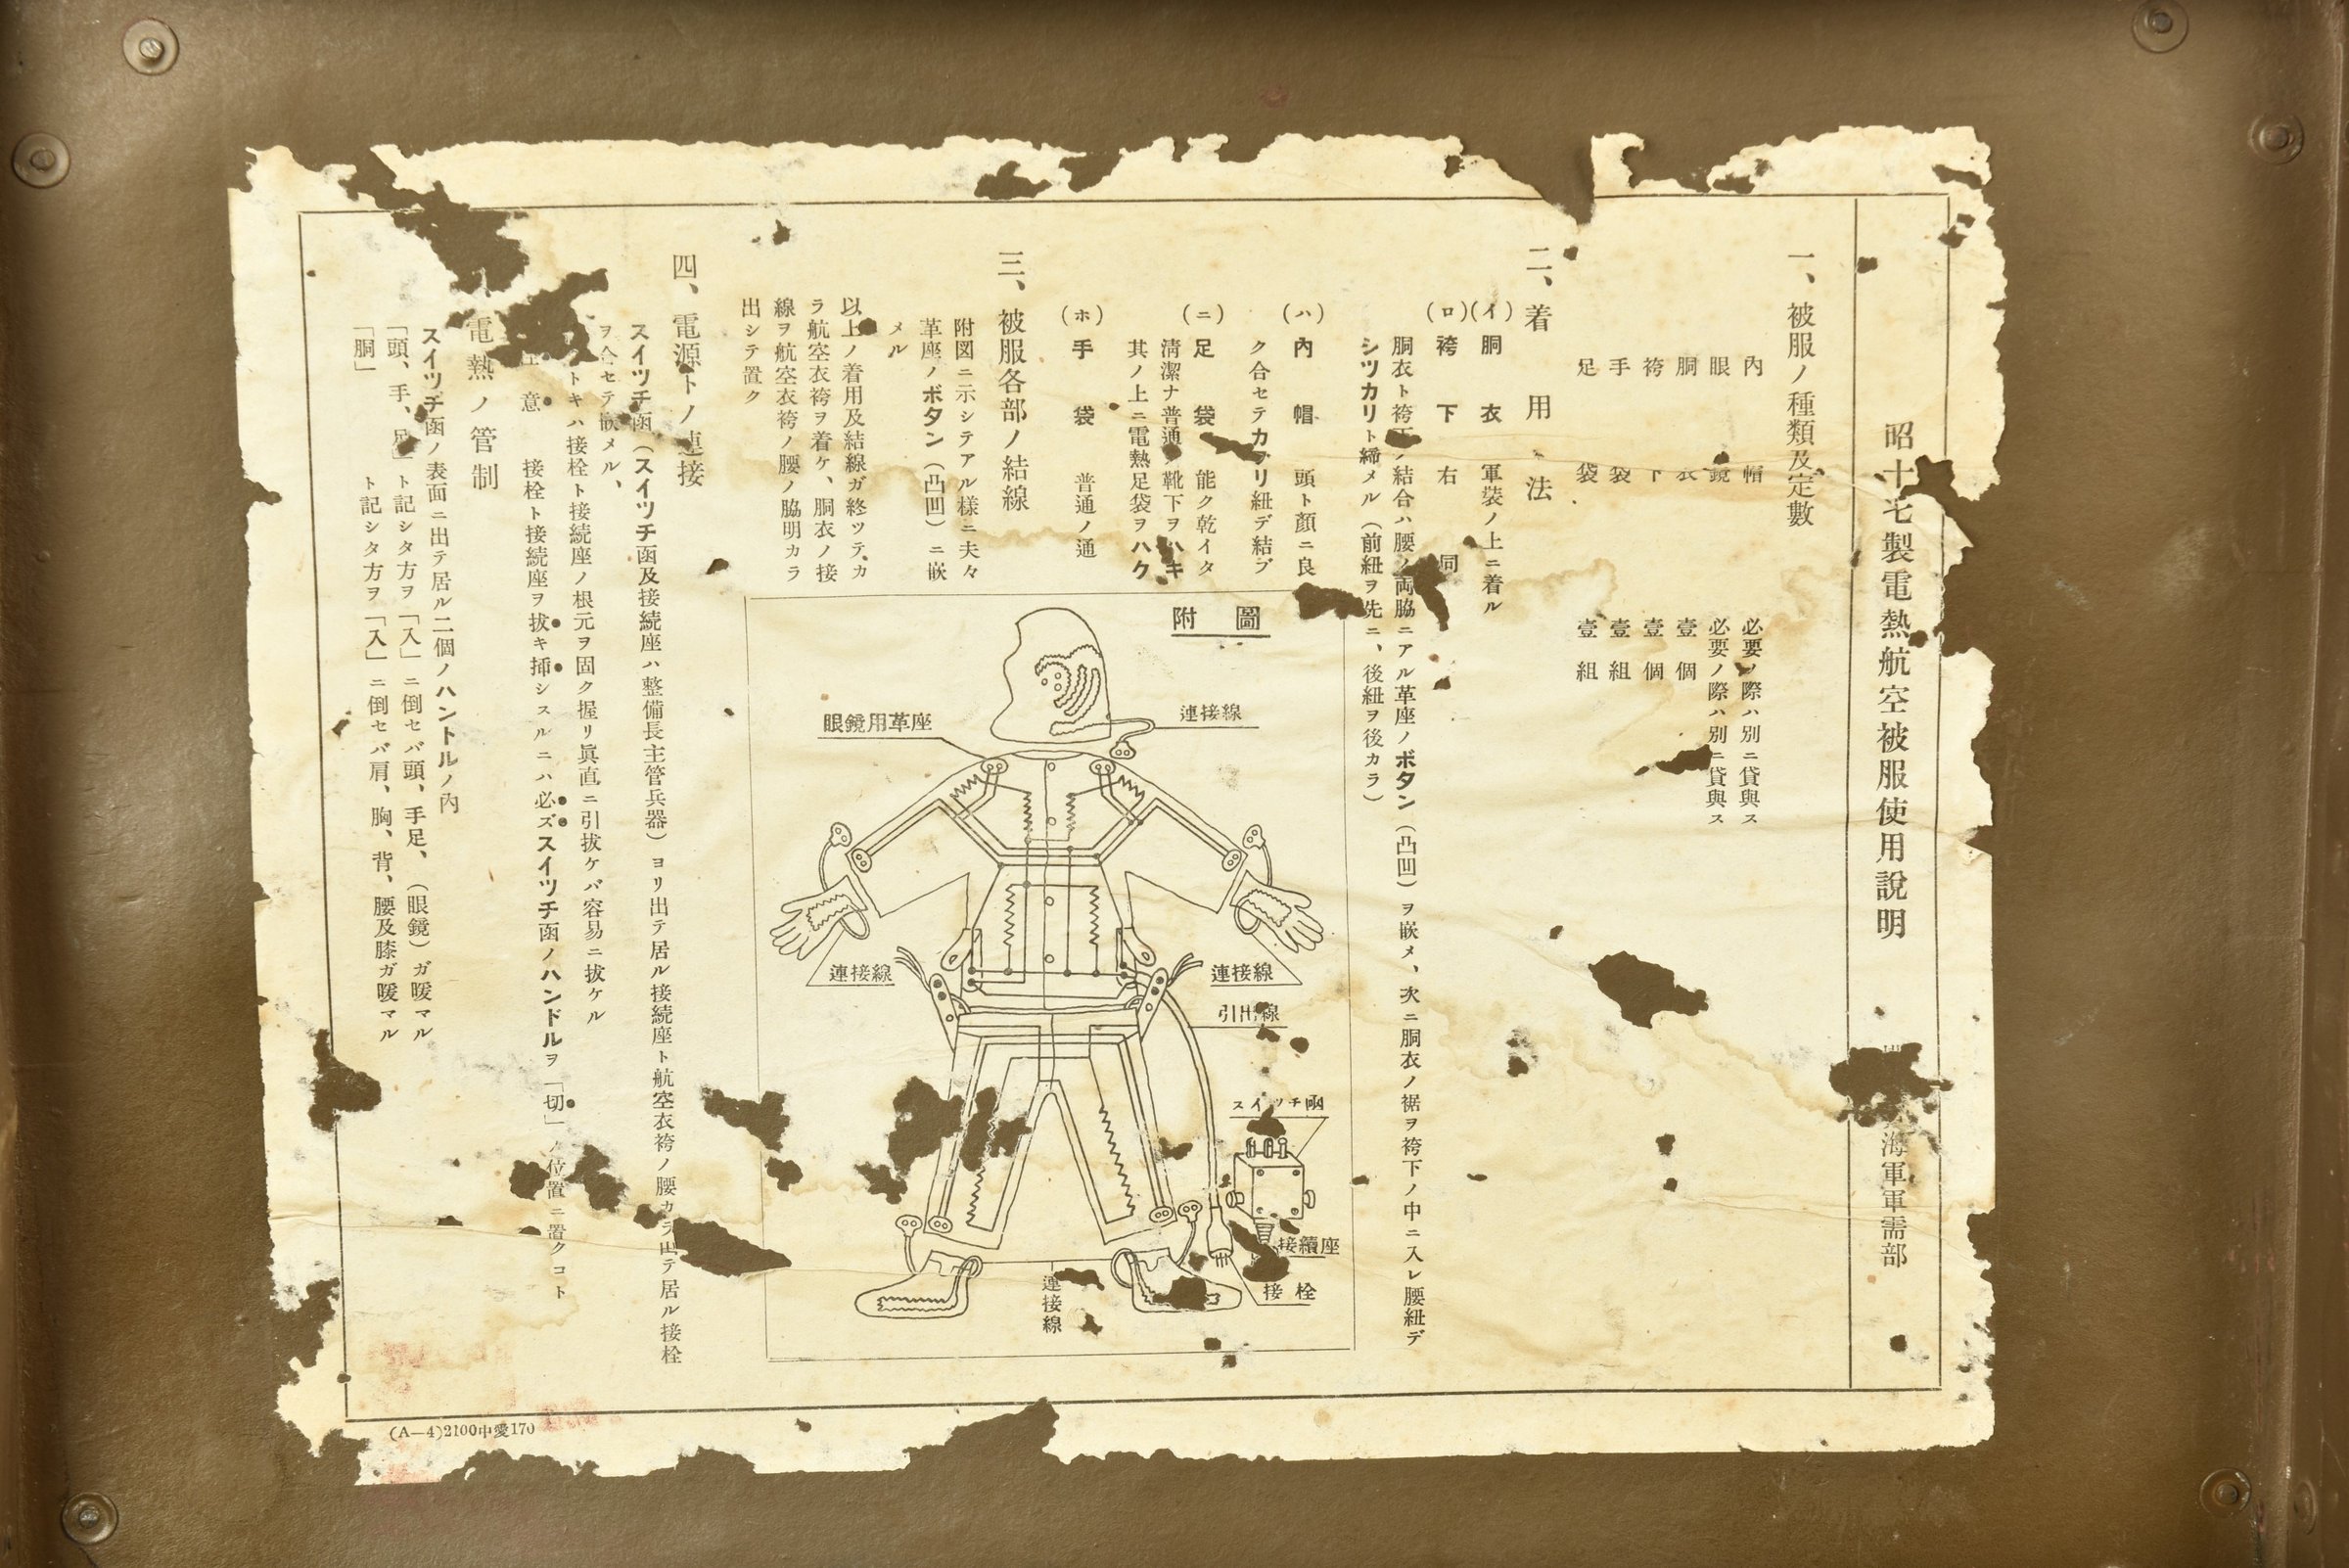 昭十七製電熱航空被服使用說明
海軍軍需部
一、被服ノ種類及定數
內帽 必要ノ際ハ別ニ貸與ス
眼鏡 必要ノ際ハ別ニ貸與ス
胴衣 壹個
袴下 壹個
手袋 壹組
足袋 壹組
二、着用法
(イ)胴衣 軍裝ノ上ニ着ル
(ロ)袴下 右同
胴衣ト袴下ノ結合ハ腰ノ両脇ニアル革座ノボタン(凸凹)ヲ嵌メ、次ニ胴衣ノ裾ヲ袴下ノ中ニ入レ腰紐デ
シツカリト締メル(前紐ヲ先ニ、後紐ヲ後カラ)
(ハ)內帽 頭ト顔ニ良
ク合セテカブリ紐デ結ブ
(ニ)足袋 能ク乾イタ
淸潔ナ普通ノ靴下ヲハキ
其ノ上ニ電熱足袋ヲハク
(ホ)手袋 普通ノ通
三、被服各部ノ結線
附図ニ示シテアル様ニ夫々
革座ノボタン(凸凹)ニ嵌
メル
以上ノ着用及結線ガ終ツテ、カ
ラ航空衣袴ヲ着ケ、胴衣ノ接
線ヲ航空衣袴ノ腰ノ脇明カラ
出シテ置ク
附圖
連接線
眼鏡用革座
連接線
連接線
引出線
スイツチ函
接續座
接栓
連接線
四、電源トノ連接
スイツチ函(スイツチ函及接続座ハ整備長主管兵器)ヨリ出テ居ル接続座ト航空衣袴ノ腰カラ出テ居ル接栓
ヲ合セテ嵌メル、
トキハ接栓ト接続座ノ根元ヲ固ク握リ眞直ニ引拔ケバ容易ニ拔ケル
意 接栓ト接続座ヲ拔キ揷シスルニハ必ズスイツチ函ノハンドルヲ「切」ノ位置ニ置クコト
電熱ノ管制
スイツチ函ノ表面ニ出テ居ル二個ノハンドルノ內
「頭、手、足」ト記シタ方ヲ「入」ニ倒セバ頭、手足、(眼鏡)ガ暖マル
「胴」ト記シタ方ヲ「入」ニ倒セバ肩、胸、背、腰及膝ガ暖マル
(A—4)2100中愛170